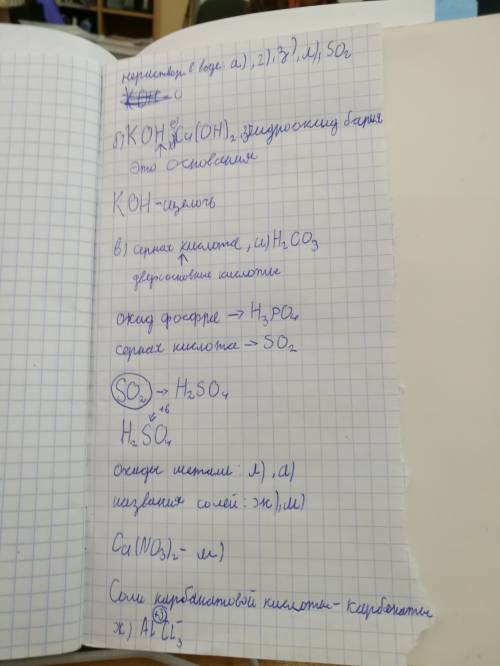 нераствор. в воде: а), г), з), л), SO₂
б) KOH, е) Cu(OH)₂, гидрооксид бария
↑
Это основания
KOH - щелочь
в) серная кислота, и) H₂CO₃
↑
двухосновные кислоты
оксид фосфра → H₃PO₄
серная кислота → SO₂
SO₂ → H₂SO₄
+6
H₂SO₄
оксиды металл: л), а)
названия солей: ж), м)
Ca(NO₃)₂ - м)
Соли карбанатовой кислоты - карбонаты
+3
ж) AlCl₃⁻